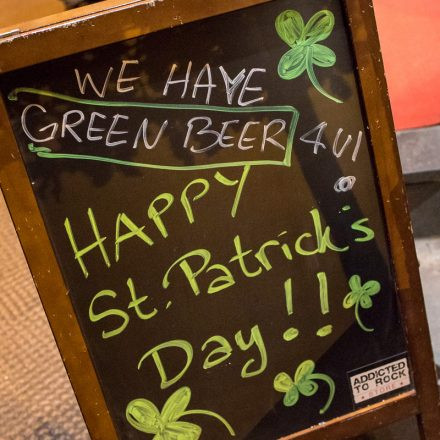 WE HAVE
GREEN BEER 4 U!
HAPPY
St. Patrick's
Day!!
ADDICTED
TO ROCK
STORE